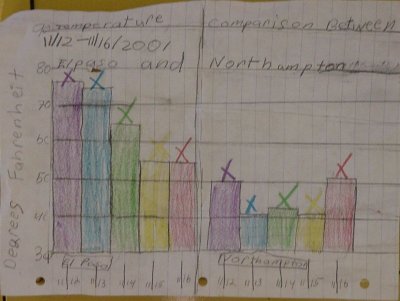 Temperature Comparison Between
11/12-11/16/2001
El paso and Northampton
Degrees Fahrenheit
80
70
60
50
40
30
El Paso Northampton
11/12 11/13 11/14 11/15 11/16 11/12 11/13 11/14 11/15 11/16